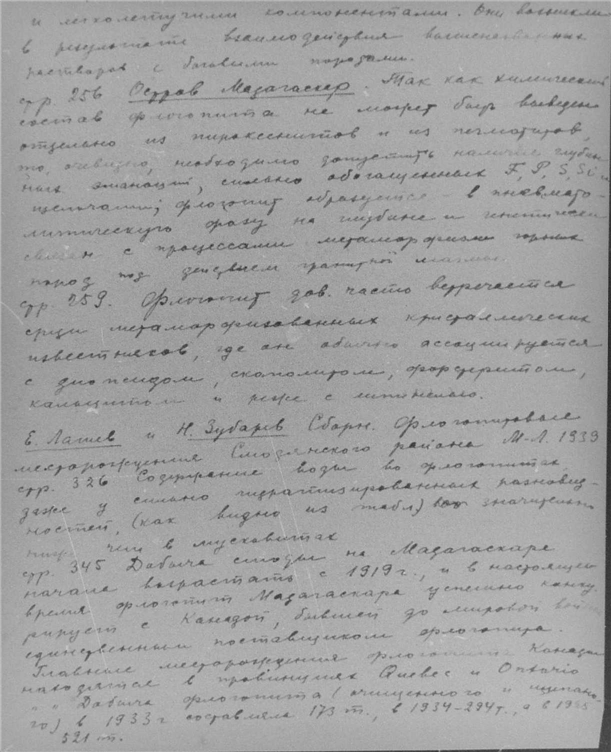 и легколетучими компонентами. Они возникли
в результате взаимодействия вышеназванных
растворов с боковыми породами.
стр. 256 Остров Мадагаскар. Так как химический
состав флогопита не может быть выведен
отдельно из пироксенитов и из пегматитов,
то, очевидно, необходимо допустить наличие глубин-
ных эманаций, сильно обогащенных F, P, S, Si и
щелочами; флогопит образуется в пневмато-
литическую фазу на глубине и генетически
связан с процессами метаморфизма горных
пород под действием гранитной магмы.
стр. 259. Флогопит дов. часто встречается
среди метаморфизованных кристаллических
известняков, где он обычно ассоциируется
с диопсидом, скаполитом, форстеритом,
кальцитом и реже с шпинелью.
Е. Лашев и Н. Зубарев Сборн. Флогопитовые
месторождения Слюдянского района М-Л. 1939
стр. 326 Содержание воды во флогопитах,
даже у сильно гидратизированных разновид-
ностей, (как видно из табл.) значительно
ниже чем в мусковитах
стр. 345 Добыча слюды на Мадагаскаре
начала возрастать с 1919 г., и в настоящее
время флогопит Мадагаскара успешно конку-
рирует с Канадой, бывшей до мировой войны
единственным поставщиком флогопита.
Главные месторождения флогопита Канады
находятся в провинциях Quebec и Ontario
" " Добыча флогопита (очищенного и щипано-
го) в 1933 г составляла 173 т., в 1934-294т, а в 1935
521 т.